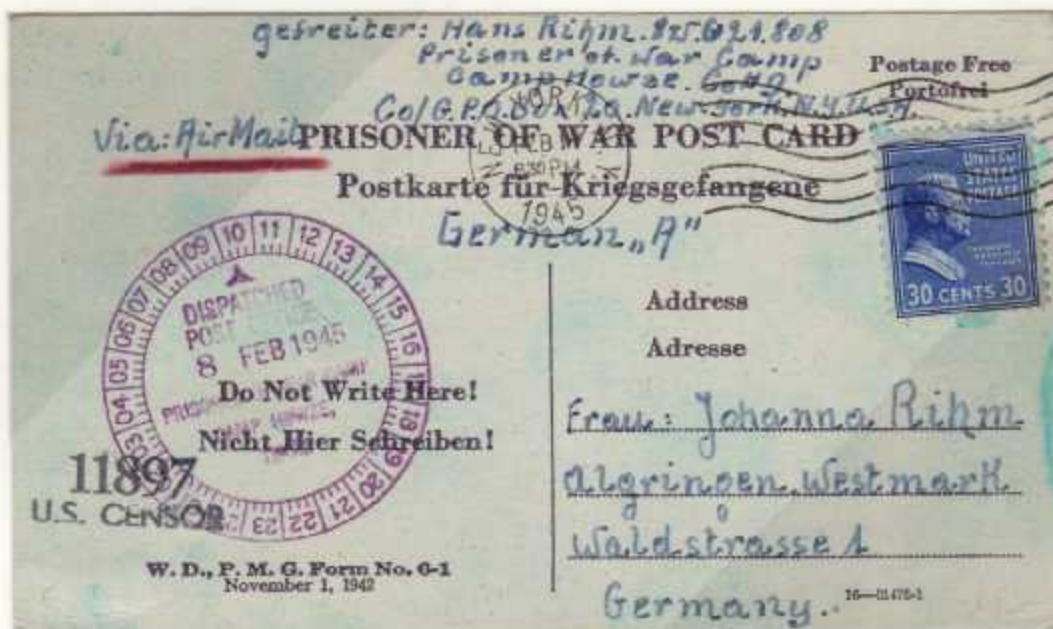 gefreiter: Hans Rihm. 8W.G21.808
Prisoner of War Camp
Camp Howze. Co#9.
Co/G.P.O.Box 20. New-York. N.Y.U.S.A.
Postage Free
Portofrei
Via: Air Mail
PRISONER OF WAR POST CARD
Postkarte für Kriegsgefangene
German „A"
YORK
830 PM
1945
UNITED
STATES
POSTAGE
30 CENTS 30
01 02 03 04 05 06 07 08 09 10 11 12 13 14 15 16 17 18 19 20 21 22 23
DISPATCHED
POST
8 FEB 1945
PRISONER
CAMP HOWZE,
Do Not Write Here!
Nicht Hier Schreiben!
11897
U.S. CENSOR
W. D., P. M. G. Form No. 6-1
November 1, 1942
Address
Adresse
Frau: Johanna Rihm
Algringen. Westmark
Waldstrasse 1
Germany.